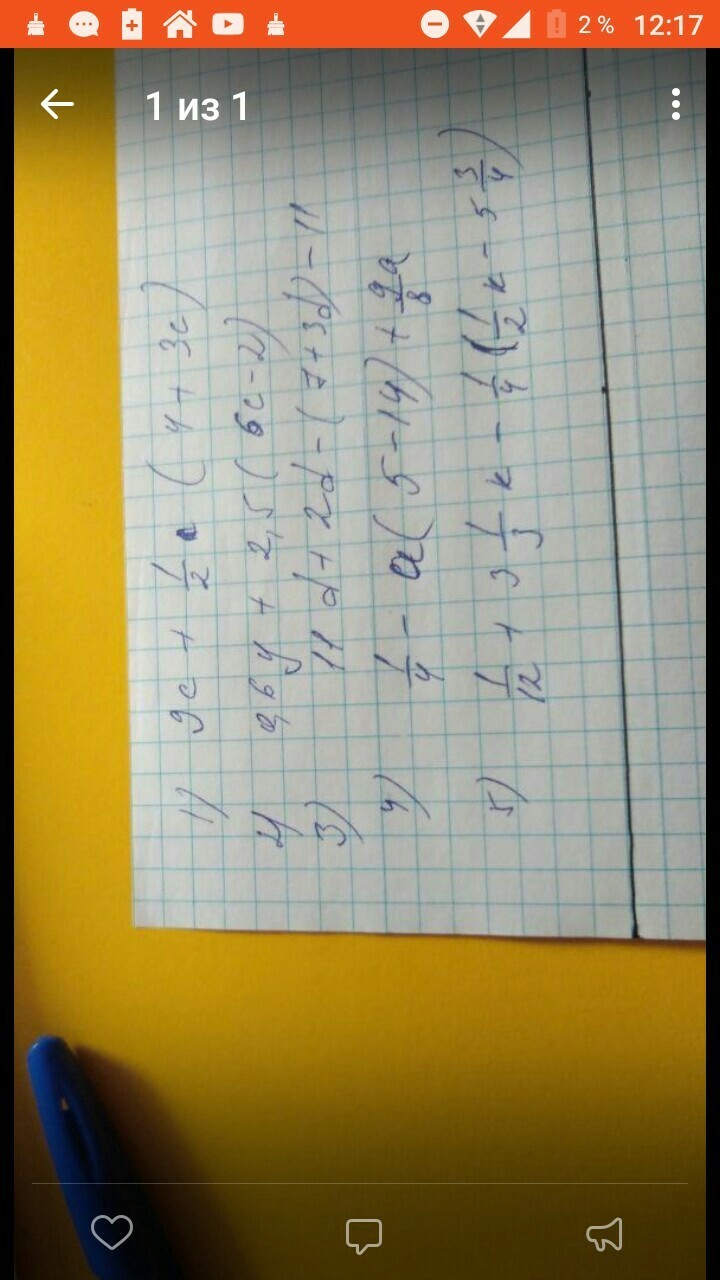 2 % 12:17
1 из 1
1) 9c + 1/2 (4 + 3c)
2) 2,6y + 2,5 (6c - 2)
3) 11 d + 2d - (7 + 3d) - 11
4) 1/4 - a (5 - 14) + 9a/8
5) 1/12 + 3 1/3 k - 1/4 (1/2 k - 5 3/4)